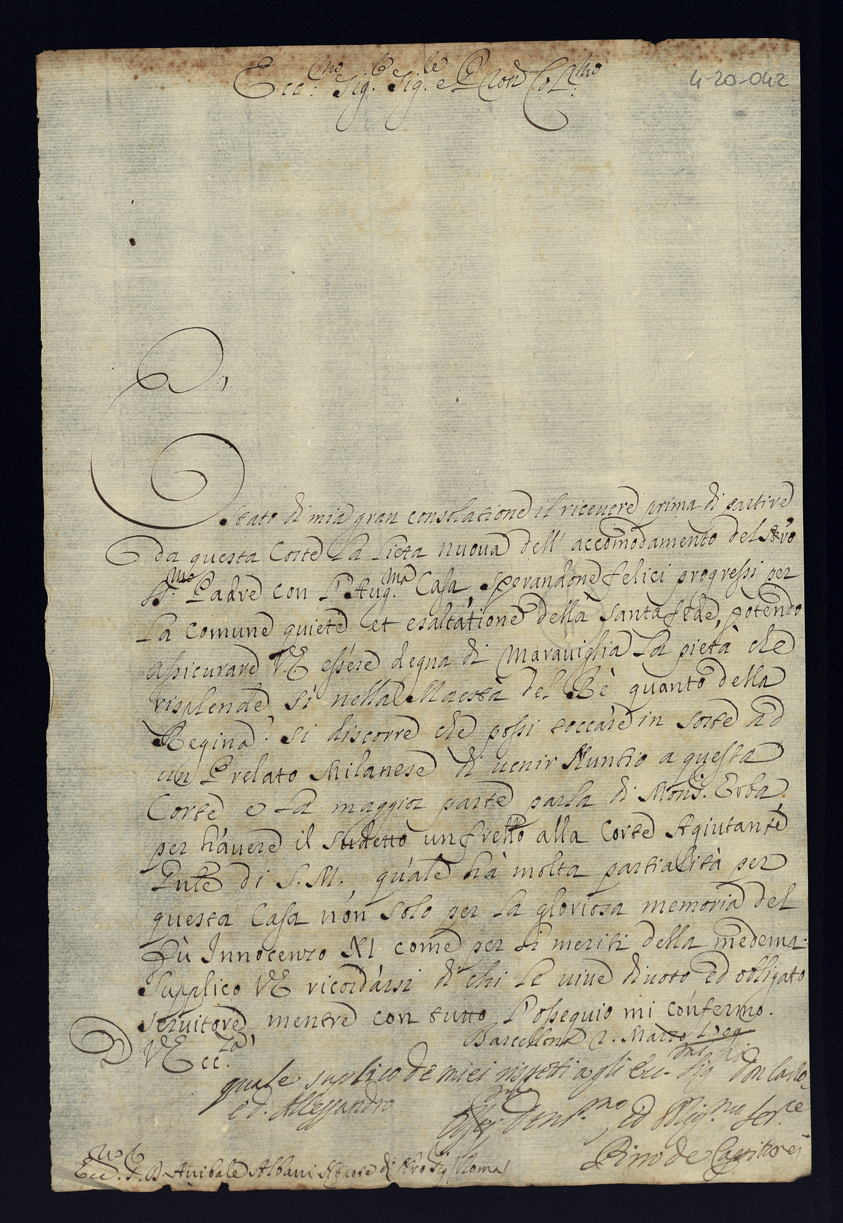 Ecc.mo Sig.r Sig.re e P̄ron Col.mo
4-20-042
È stato di mia gran consolatione il riceuere prima di partire
da questa Corte La lieta nuoua dell' accomodamento del Nro
S.mo Padre con l'Aug.ma Casa, sperandone felici progressi per
La comune quiete et esaltatione della santa fede, potendo
assicurare VE essere degna di Marauiglia La pietà che
risplende si nella Maestà del Rè quanto della
Regina: si discorre che possi toccare in sorte ad
un Prelato Milanese di uenir Nuntio a questa
Corte e La maggior parte parla di Mons. Erba
per hauere il sudetto un frello alla Corte Agiutante
di S. M., quale hà molta partialità per
questa Casa non solo per La gloriosa memoria del
fù Innocenzo XI come per Li meriti della medema.
Supplico VE ricordarsi di chi Le uiue diuoto ed obligato
seruitore mentre con tutto L'ossequio mi confermo.
Barcellona 2. Marzo
D VEcc.za
quale suplico de miei rispetti a gli Ecc.mi Sig.ri Don Carlo
e d. Alessandro
ed Oblig.mo Ser.re
Pirro de Capitanei
Ecc.mo S.r D. Anibale Albani Nipote di Nro Sig.re Roma